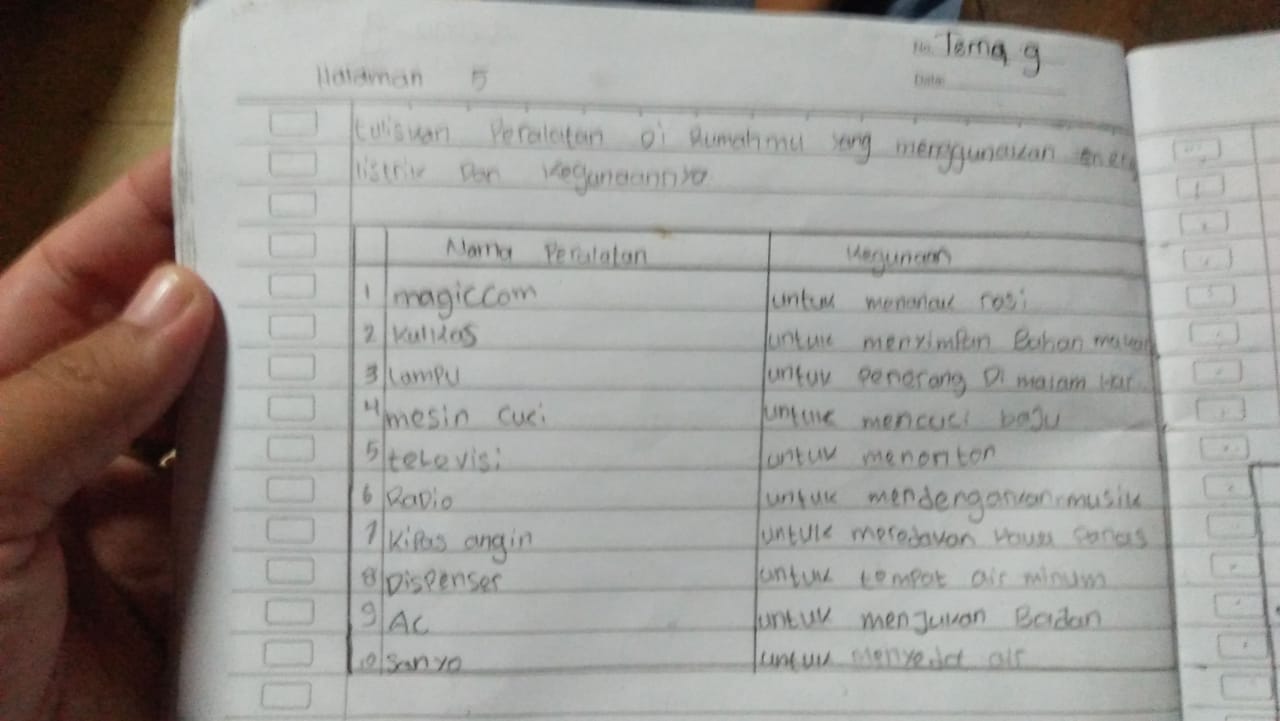 No. Tema 9
Halaman 5
Date:
tuliskan Peralatan Di Rumahmu yang menggunakan ener
listrik Dan Kegunaannya
Nama Peralatan Kegunaan
1 magiccom untuk menanak nasi
2 Kulkas untuk menyimpan Bahan makan
3 Lampu untuk Penerang Di malam Har
4 mesin cuci untuk mencuci baju
5 televisi untuk menonton
6 Radio untuk mendengarkan musik
7 Kipas angin untuk meredakan Hawa Panas
8 Dispenser untuk tempat air minum
9 AC untuk menjukan Badan
10 Sanyo untuk menyedot air